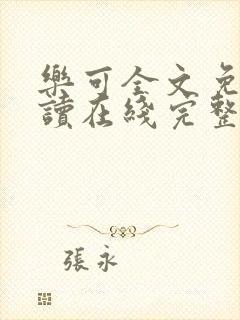 樂可全文免
讀在綫完整
張永